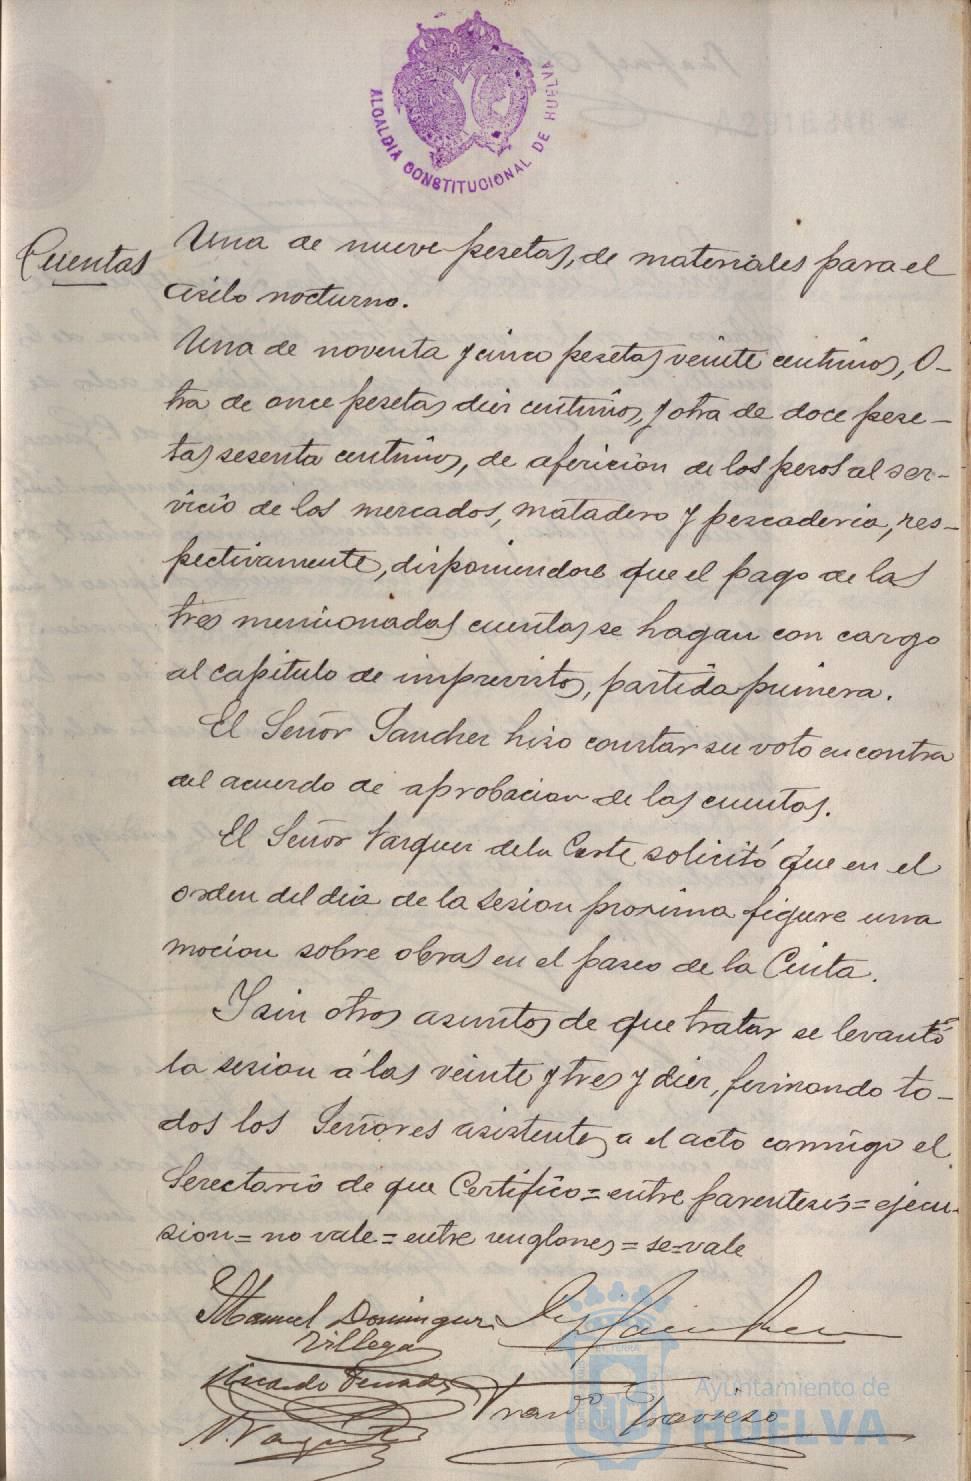 ALCALDIA CONSTITUCIONAL DE HUELVA
A2916846
Cuentas
Una de nueve pesetas, de materiales para el
asilo nocturno.
Una de noventa y cinco pesetas veinte centimos, O-
tra de once pesetas diez centimos, y otra de doce pese-
tas sesenta centimos, de afericion de los pesos al ser-
vicio de los mercados, matadero y pescaderia, res-
pectivamente, disponiendose que el pago de las
tres mencionadas cuentas se hagan con cargo
al capitulo de imprevistos, partida primera.
El Señor Sanchez hizo constar su voto en contra
del acuerdo de aprobacion de las cuentas.
El Señor Vazquez de la Corte solicitó que en el
orden del dia de la sesion proxima figure una
mocion sobre obras en el paseo de la Cinta.
Y sin otros asuntos de que tratar se levantó
la sesion á las veinte y tres y diez, firmando to-
dos los Señores asistentes a el acto conmigo el
Secretario de que Certifico=entre parentesis=ejecu-
sion=no vale=entre renglones=se=vale
Manuel Dominguez
Villegas
Ricardo Terrades
Fran^co Travieso
N. Vazquez
Ayuntamiento de
HUELVA